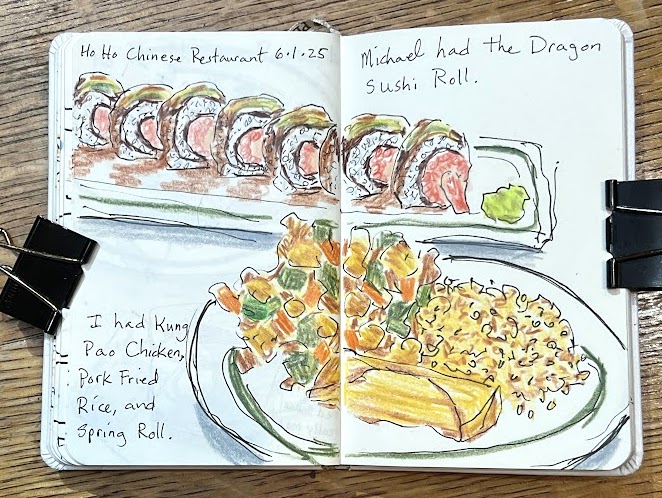 Ho Ho Chinese Restaurant 6.1.25
Michael had the Dragon
Sushi Roll.
I had Kung
Pao Chicken,
Pork Fried
Rice, and
Spring Roll.